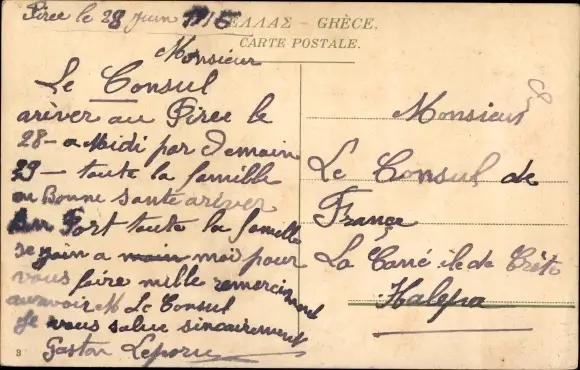 Pirée le 28 Juin
ΕΛΛΑΣ - GRÈCE.
CARTE POSTALE.
Monsieur
Le Consul
ariver au Pirée le
28 - a Midi par Demain
29 - toute la famille
en Bonne santé ariver
Bon Port toute la famille
se join a moi pour
vous faire mille remerciment
aurevoir M Le Consul
Je vous salue sincairement
Gaston
Monsieur
Le Consul de
France
La Cané ile de Crète
Halepa
3